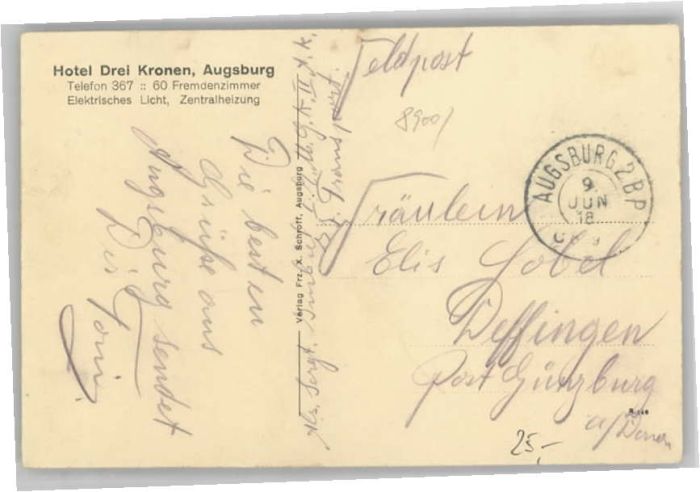 Hotel Drei Kronen, Augsburg
Telefon 367 :: 60 Fremdenzimmer
Elektrisches Licht, Zentralheizung
Die besten
Grüße aus
Augsburg sendet
Dir
Toni.
Verlag Frz. X. Schroff, Augsburg
Feldpost
8900/
AUGSBURG 2 BP
9.
JUN
18
Fräulein
Elis Lobel
Deffingen
Post Günzburg
a/Donau
25,-